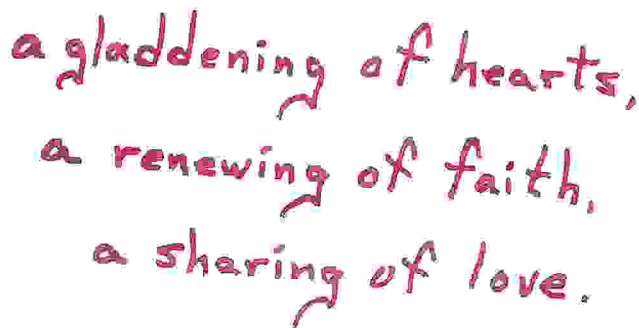 a gladdening of hearts,
a renewing of faith,
a sharing of love.